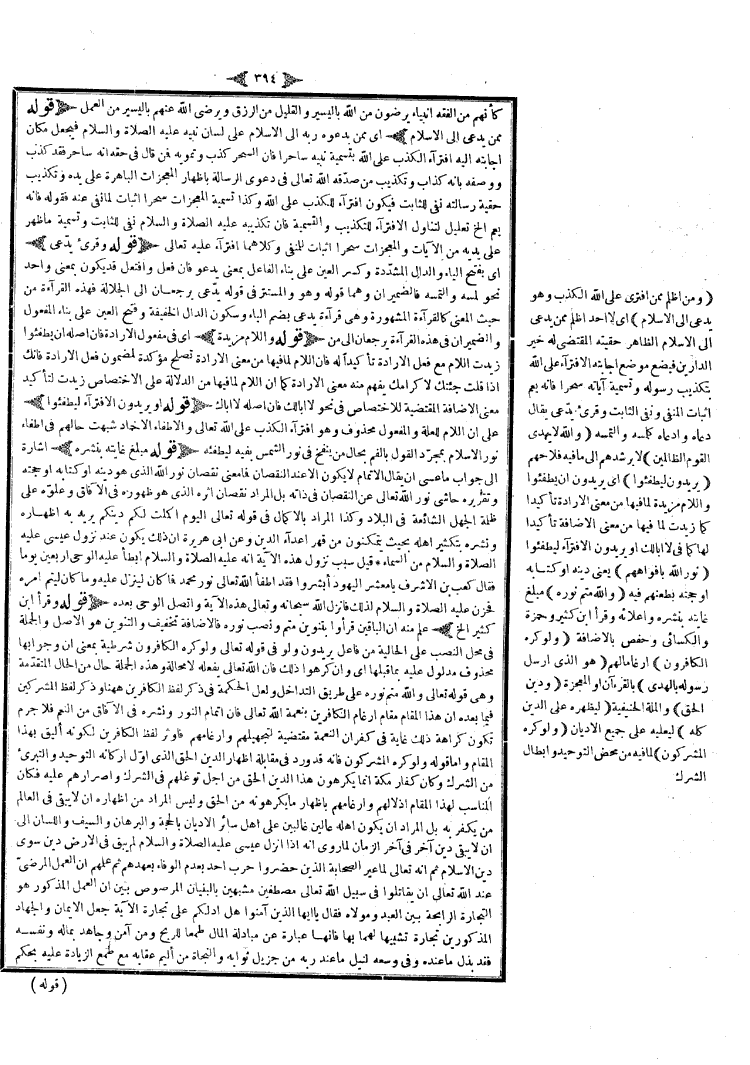 ٣٩٤
كأنهم من الفقه انبياء يرضون من الله باليسير و القليل من الرزق و يرضى الله عنهم باليسير من العمل قوله
ممن يدعى الى الاسلام اى ممن يدعوه ربه الى الاسلام على لسان نبيه عليه الصلاة و السلام فيجعل مكان
اجابته اليه افتراء الكذب على الله بتسمية نبيه ساحرا فان السحر كذب و تمويه فن قال فى حقه انه ساحر فقد كذب
ووصفه بانه كذاب و تكذيب من صدقه الله تعالى فى دعوى الرسالة باظهار المعجزات الباهرة على يده و تكذيب
حقية رسالته نفى للثابت فيكون افتراء للكذب على الله وكذا تسمية المعجزات سحرا اثبات لمانفى عنه فقوله فانه
يعم الخ تعليل لتناول الافتراء للتكذيب و التسمية فان تكذيبه عليه الصلاة و السلام نفى للثابت و تسمية ماظهر
على يديه من الآيات و المعجزات سحرا اثبات للمنفى وكلاهما افتراء عليه تعالى قوله وقرئ يدّعى
اى بفتح الياء والدال المشدّدة وكسر العين على بناء الفاعل بمعنى يدعو فان فعل و افتعل قديكون بمعنى واحد
نحو لمسه و التمسه فالضميران وهما قوله وهو و المستتر فى قوله يدّعى يرجعان الى الجلالة فهذه القراءة من
حيث المعنى كالقراءة المشهورة وهى قراءة يدعى بضم الياء وسكون الدال الخفيفة و فتح العين على بناء المفعول
و الضميران فى هذه القراءة يرجعان الى من قوله و اللام مزيدة اى فى مفعول الارادة فان اصله ان يطفئوا
زيدت اللام مع فعل الارادة تأكيدا له فان اللام لما فيها من معنى الارادة تصلح مؤكدة لمضمون فعل الارادة فانك
اذا قلت جئتك لاكرامك يفهم منه معنى الارادة كما ان اللام لما فيها من الدلالة على الاختصاص زيدت لتأكيد
معنى الاضافة المقتضية للاختصاص فى نحو لا ابالك فان اصله لا اباك قوله او يريدون الافتراء ليطفئوا
على ان اللام للعلة و المفعول محذوف و هو افتراء الكذب على الله تعالى و الاطفاء الاخماد شبهت حالهم فى اطفاء
نور الاسلام بمجرّد القول بالفم بحال من ينفخ فى نور الشمس بفيه ليطفئه قوله مبلغ غايته بنشره اشارة
الى جواب ماعسى ان يقال الاتمام لايكون الاعند النقصان فامعنى نقصان نور الله الذى هو دينه او كتابه او حجته
و تقريره حاشى نور الله تعالى عن النقصان فى ذاته بل المراد نقصان اثره الذى هو ظهوره فى الآفاق و علوّه على
ظلمة الجهل الشائعة فى البلاد وكذا المراد بالاكمال فى قوله تعالى اليوم اكملت لكم دينكم يريد به اظهاره
و نشره بتكثير اهله بحيث يتمكنون من قهر اعداء الدين وعن ابى هريرة ان ذلك يكون عند نزول عيسى عليه
الصلاة و السلام من السماء قيل سبب نزول هذه الآية انه عليه الصلاة و السلام ابطأ عليه الوحى اربعين يوما
فقال كعب بن الاشرف يامعشر اليهود أبشروا فقد اطفأ الله تعالى نور محمد فاكان لينزل عليه وما كان ليتم امره
فحزن عليه الصلاة و السلام لذلك فانزل الله سبحانه وتعالى هذه الآية و اتصل الوحى بعده قوله وقرأ ابن
كثير الخ علم منه ان الباقين قرأوا بتنوين متم و نصب نوره فالاضافة تخفيف و التنوين هو الاصل و الجملة
فى محل النصب على الحالية من فاعل يريدون و لو فى قوله تعالى ولو كره الكافرون شرطية بمعنى ان وجوابها
محذوف مدلول عليه بماقبلها اى وان كرهوا ذلك فان الله تعالى يفعله لامحالة وهذه الجملة حال من الحال المتقدّمة
وهى قوله تعالى والله متم نوره على طريق التداخل ولعل الحكمة فى ذكر لفظ الكافرين ههنا وذكر لفظ المشركين
فيما بعده ان هذا المقام مقام ارغام الكافرين بنعمة الله تعالى فان اتمام النور و نشره فى الآفاق من النعم فلا جرم
تكون كراهة ذلك غاية فى كفران النعمة مقتضية لتجهيلهم و ارغامهم فاوثر لفظ الكافرين لكونه أليق بهذا
المقام و اماقوله ولو كره المشركون فانه قدورد فى مقابلة اظهار الدين الحق الذى اوّل اركانه التوحيد و التبرئ
من الشرك وكان كفار مكة انما يكرهون هذا الدين الحق من اجل توغلهم فى الشرك و اصرارهم عليه فكان
المناسب لهذا المقام اذلالهم و ارغامهم باظهار مايكرهونه من الحق وليس المراد من اظهاره ان لايبقى فى العالم
من يكفر به بل المراد ان يكون اهله عالين غالبين على اهل سائر الاديان بالحجة و البرهان و السيف و اللسان الى
ان لايبقى دين آخر فى آخر الزمان لماروى انه اذا انزل عيسى عليه الصلاة و السلام لم يبق فى الارض دين سوى
دين الاسلام ثم انه تعالى لماعير الصحابة الذين حضروا حرب احد بعدم الوفاء بعهدهم ثم علمهم ان العمل المرضىّ
عند الله تعالى ان يقاتلوا فى سبيل الله تعالى مصطفين مشبهين بالبنيان المرصوص بين ان العمل المذكور هو
التجارة الرابحة بين العبد و مولاه فقال ياايها الذين آمنوا هل ادلكم على تجارة الآية جعل الايمان و الجهاد
المذكورين تجارة تشبيها لهما بها فانها عبارة عن مبادلة المال طمعا للربح ومن آمن وجاهد بماله و نفسه
فقد بذل ماعنده و فى وسعه لنيل ماعند ربه من جزيل ثوابه و النجاة من أليم عقابه مع طمع الزيادة عليه بحكم
( قوله )
( ومن اظلم ممن افترى على الله الكذب وهو
يدعى الى الاسلام ) اى لا احد اظلم ممن يدعى
الى الاسلام الظاهر حقيته المقتضى له خير
الدارين فيضع موضع اجابته الافتراء على الله
بتكذيب رسوله و تسمية آياته سحرا فانه يعم
اثبات المنفى و نفى الثابت و قرئ يدّعى يقال
دعاه و ادعاه كلمسه و التمسه ( والله لايهدى
القوم الظالمين ) لا يرشدهم الى مافيه فلاحهم
( يريدون ليطفئوا ) اى يريدون ان يطفئوا
و اللام مزيدة لما فيها من معنى الارادة تأكيدا
كما زيدت لما فيها من معنى الاضافة تأكيدا
لها كما فى لا ابالك او يريدون الافتراء ليطفئوا
( نور الله بافواههم ) يعنى دينه او كتابه
او حجته بطعنهم فيه ( والله متم نوره ) مبلغ
غايته بنشره و اعلائه و قرأ ابن كثير و حمزة
و الكسائى و حفص بالاضافة ( و لو كره
الكافرون ) ارغامالهم ( هو الذى ارسل
رسوله بالهدى ) بالقرءان او المعجزة ( ودين
الحق ) و الملة الحنيفية ( ليظهره على الدين
كله ) ليعليه على جميع الاديان ( و لو كره
المشركون ) لما فيه من محض التوحيد و ابطال
الشرك